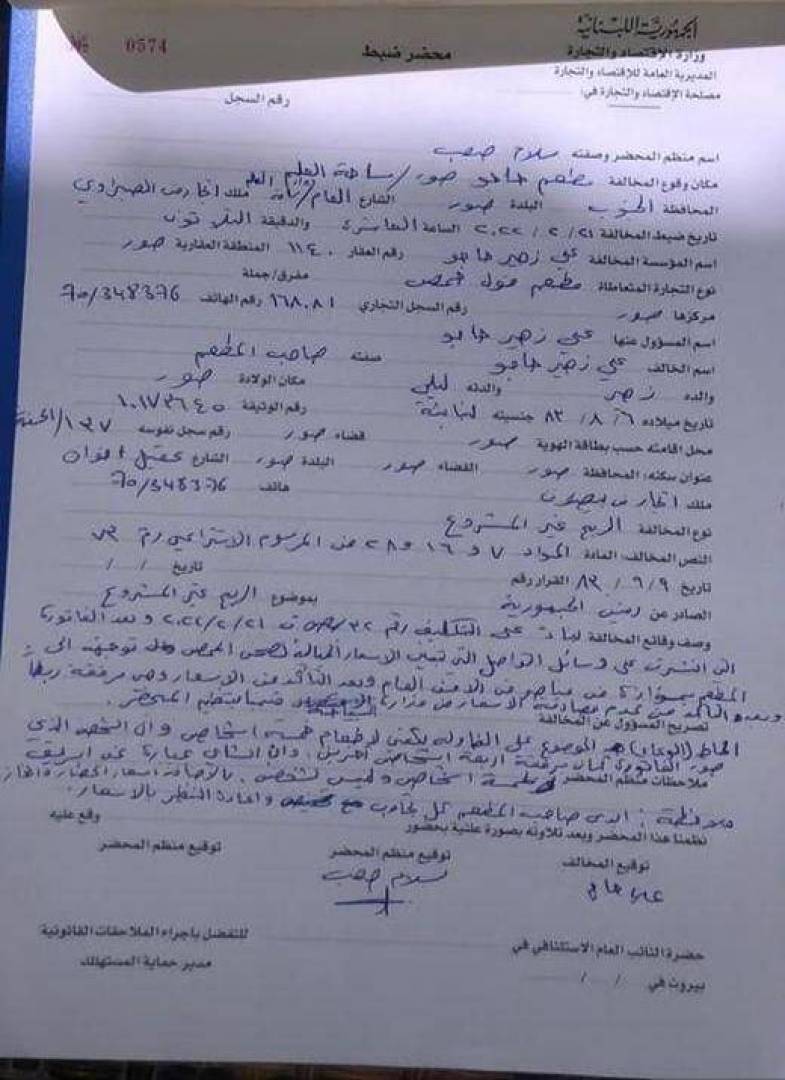 الجمهورية اللبنانية
وزارة الإقتصاد والتجارة
المديرية العامة للاقتصاد والتجارة
مصلحة الإقتصاد والتجارة في:
محضر ضبط
№ 0574
رقم السجل
اسم منظم المحضر وصفته سلام صعب
مكان وقوع المخالفة مطعم جاجو صور / ساحة القلم
المحافظة الجنوب البلدة صور الشارع العام / ملك
تاريخ ضبط المخالفة ٢١ / ٢ / ٢٠٢٢ الساعة العاشرة والدقيقة الثلاثون
اسم المؤسسة المخالفة علي زهير رقم العقار ١١٤٠ المنطقة العقارية صور
نوع التجارة المتعاطاة مطعم فول حمص مفرق/جملة
مركزها صور رقم السجل التجاري ١٦٨٠٨١ رقم الهاتف 70/348376
اسم المسؤول عنها علي زهير
اسم المخالف علي زهير صفته صاحب المطعم
والده زهير والدته ليلى مكان الولادة صور
تاريخ ميلاده ٦ / ٨ / ٨٣ جنسيته لبنانية رقم الوثيقة
محل اقامته حسب بطاقة الهوية صور قضاء صور رقم سجل نفوسه ١٣٧
عنوان سكنه: المحافظة صور القضاء صور البلدة صور الشارع
ملك هاتف 70/348376
نوع المخالفة الربح غير المشروع
النص المخالف: المادة المواد ٧ و ١٦ و ٢٨ من المرسوم الاشتراعي رقم ٧٣
تاريخ ٩ / ٩ / ٨٣ القرار رقم تاريخ / /
الصادر عن رئيس الجمهورية بموضوع الربح غير المشروع
وصف وقائع المخالفة بناء على التكليف رقم ت ٢٠٢٢/٢/٢١ وبعد الفاتورة
التي انتشرت على وسائل التواصل التي تبين الاسعار لصحن الحمص توجهنا الى
المطعم بمؤازرة من عناصر من الامن العام وبعد التأكد من الاسعار وهي مرفقة ربطا
وبعد التأكد من عدم مصادقة الاسعار من وزارة السياحة ضمنا بتنظيم المحضر.
تصريح المسؤول عن المخالفة
الموضوع على الفاتورة يكفي لإطعام خمسة اشخاص وان الشخص الذي
صور الفاتورة كان برفقة اربعة اشخاص آخرين، وان الشاي عبارة عن ابريق
ملاحظات منظم المحضر لخمسة اشخاص وليس لشخص. بالاضافة اسعار الخضار
ملاحظة: ابدى صاحب المطعم كل تجاوب مع واعادة النظر بالاسعار.
نظمنا هذا المحضر وبعد تلاوته بصورة علنية بحضور وقع عليه
توقيع المخالف توقيع منظم المحضر توقيع منظم المحضر
سلام صعب
حضرة النائب العام الاستئنافي في للتفضل باجراء الملاحقات القانونية
بيروت في / / مدير حماية المستهلك